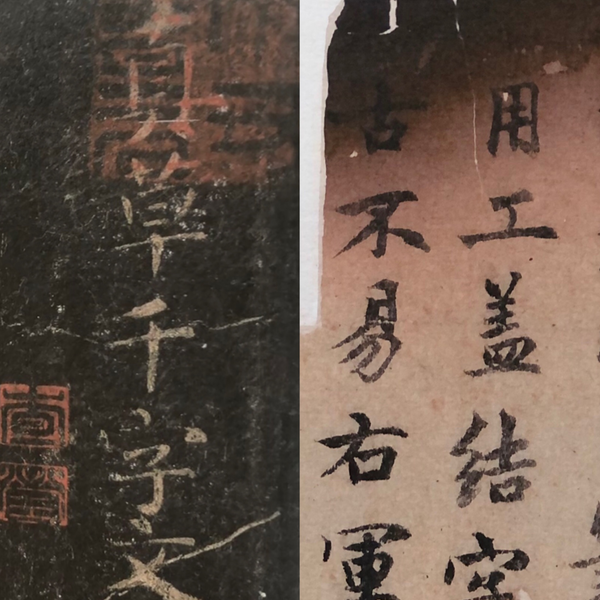 真草千字文
用工盖結字
古不易右軍